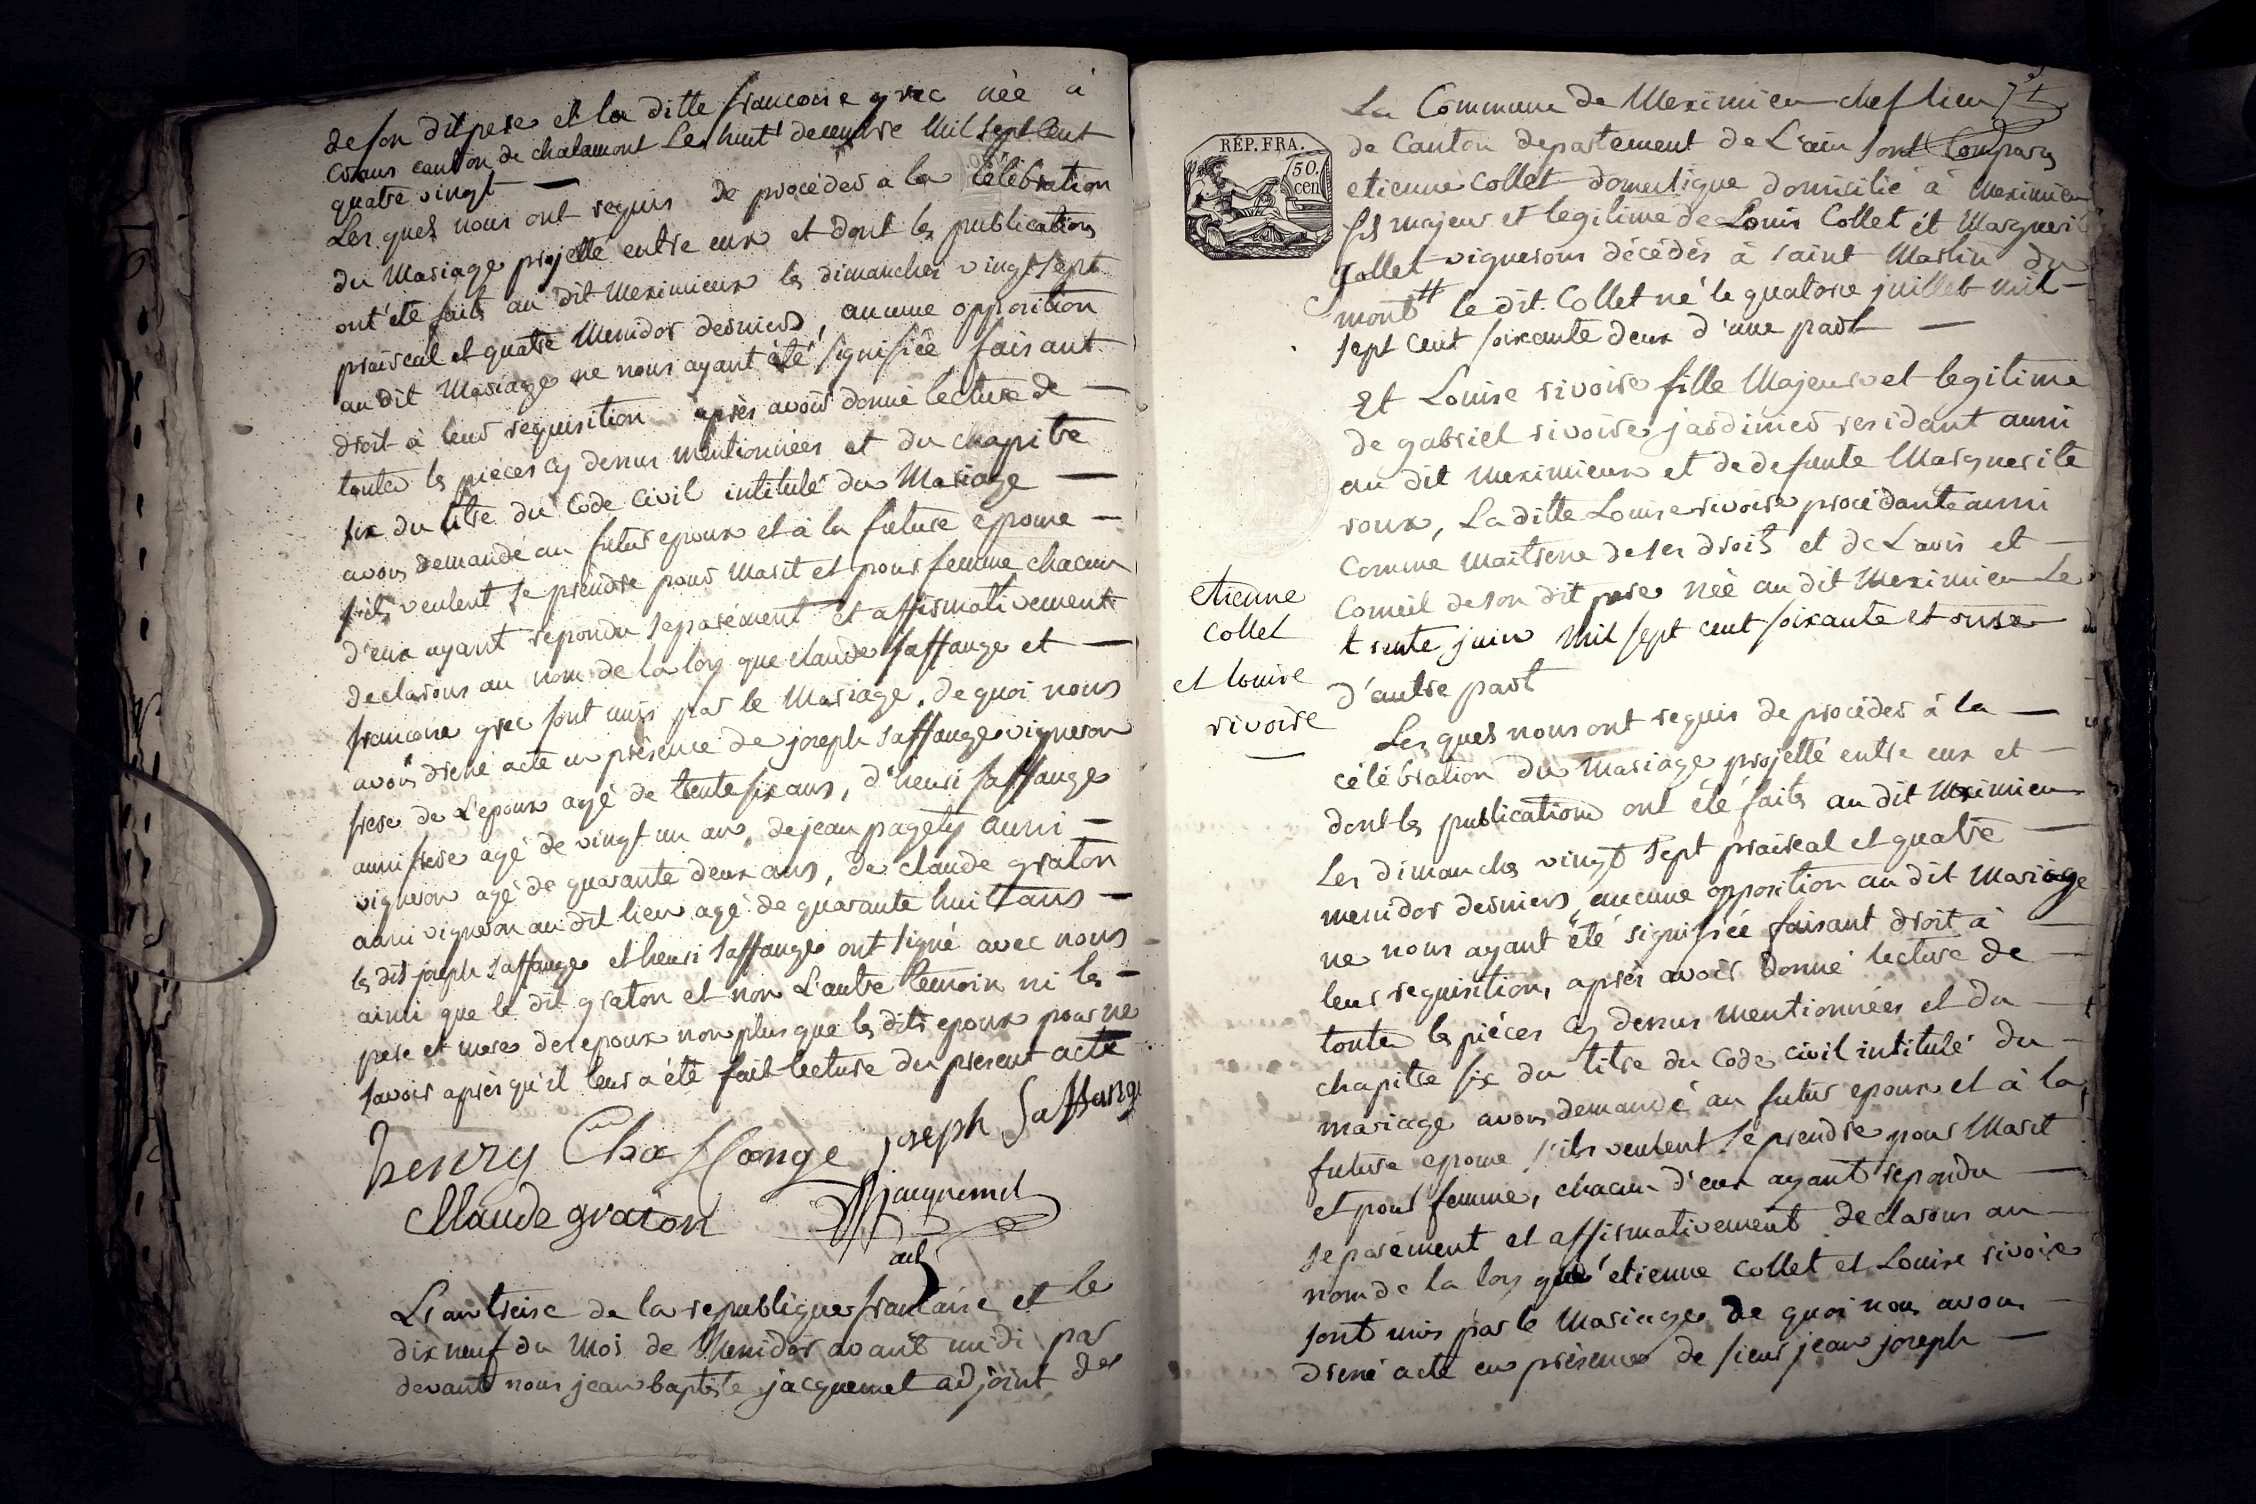 de son dit pere et la ditte francoise grec née à
crans canton de chalamont le huit decembre mil sept cent
quatre vingt —
Les quels nous ont requis de procéder a la célébration
du Mariage projetté entre eux et dont les publications
ont été faits au dit Meximieux les dimanches vingt sept
praireal et quatre Messidor derniers, aucune opposition
au dit Mariage ne nous ayant été signifiée faisant
droit à leur requisition après avoir donné lecture de —
toutes les piéces cy dessus mentionnées et du chapitre
six du titre du Code Civil intitulé du Mariage —
avons demandé au futur epoux et à la future epouse —
s'ils veulent se prendre pour Marit et pour femme chacun
d'eux ayant repondu separément et affirmativement
declarons au nom de la loy que claude saffange et —
francoise grec sont unis par le Mariage. de quoi nous
avons dressé acte en présence de joseph saffange vigneron
frere de L'epoux agé de trente six ans, d'henri saffange
aussi frere agé de vingt un an, de jean pagety aussi —
vigneron agé de quarante deux ans, de claude graton
aussi vigneron au dit lieu agé de quarante huit ans —
les dits joseph saffange et henri saffange ont signé avec nous
ainsi que le dit graton et non L'autre temoin ni les —
pere et mere des epoux non plus que les dits epoux pour ne
savoir après qu'il leur a été fait lecture du present acte
henry Chaffange joseph Saffange
Claude graton jacquemet
adj
L'an treise de la republique francaise et le
dix neuf du mois de Messidor avant midi par
devant nous jean baptiste jacquemet adjoint de
La Commune de Meximieu chef lieu
RÉP. FRA.
50.
cen
de Canton departement de L'ain sont comparus
etienne collet domestique domicilié à meximieu
fils majeur et legitime de Louis Collet et Marguerite
Collet vignerons décédés à saint Martin du
mont # le dit Collet né le quatorse juillet mil —
sept cent soixante deux d'une part —
Et Louise rivoire fille Majeure et legitime
de gabriel rivoire jardinier residant aussi
au dit meximieux et de defunte Marguerite
roux, La ditte Louise rivoire procédante aussi
comme maitresse de ses droits et de L'avis et —
Conseil de son dit pere née au dit Meximieu le
trente juin mil sept cent soixante et onse
d'autre part
etienne
collet
et louise
rivoire
—
Les quels nous ont requis de procéder à la —
célébration du mariage projetté entre eux et —
dont les publications ont été faits au dit Meximieu
Les dimanches vingt sept praireal et quatre —
messidor derniers, aucune opposition au dit Mariage
ne nous ayant été signifiée faisant droit à —
leur requisition, après avoir donné lecture de —
toutes les piéces cy dessus mentionnées et du —
chapitre six du titre du Code civil intitulé du —
mariage avons demandé au futur epoux et à la
future epouse s'ils veulent se prendre pour Marit
et pour femme, chacun d'eux ayant repondu —
separément et affirmativement declarons au —
nom de la loy que etienne collet et Louise rivoire
sont unis par le Mariage de quoi nous avons —
dressé acte en présence de sieur jean joseph —